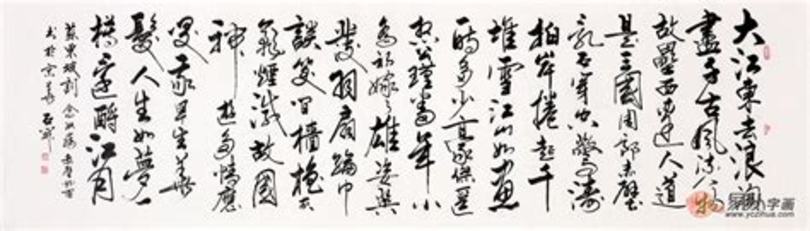 大江東去浪淘
盡千古風流人物
故壘西邊人道
是三國周郎赤壁
亂石穿空驚濤
拍岸捲起千
堆雪江山如畫
一時多少豪傑遙
想公瑾當年小
喬初嫁了雄姿英
發羽扇綸巾
談笑間檣櫓灰
飛煙滅故國
神遊多情應
笑我早生華
髮人生如夢一
樽還酹江月
蘇東坡詞念奴嬌赤壁懷古
書於京華
字画
www.yczihua.com